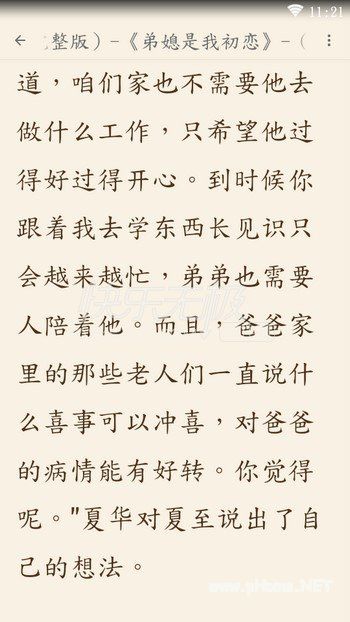 11:21
整版）-《弟媳是我初恋》-（
道，咱们家也不需要他去
做什么工作，只希望他过
得好过得开心。到时候你
跟着我去学东西长见识只
会越来越忙，弟弟也需要
人陪着他。而且，爸爸家
里的那些老人们一直说什
么喜事可以冲喜，对爸爸
的病情能有好转。你觉得
呢。"夏华对夏至说出了自
己的想法。